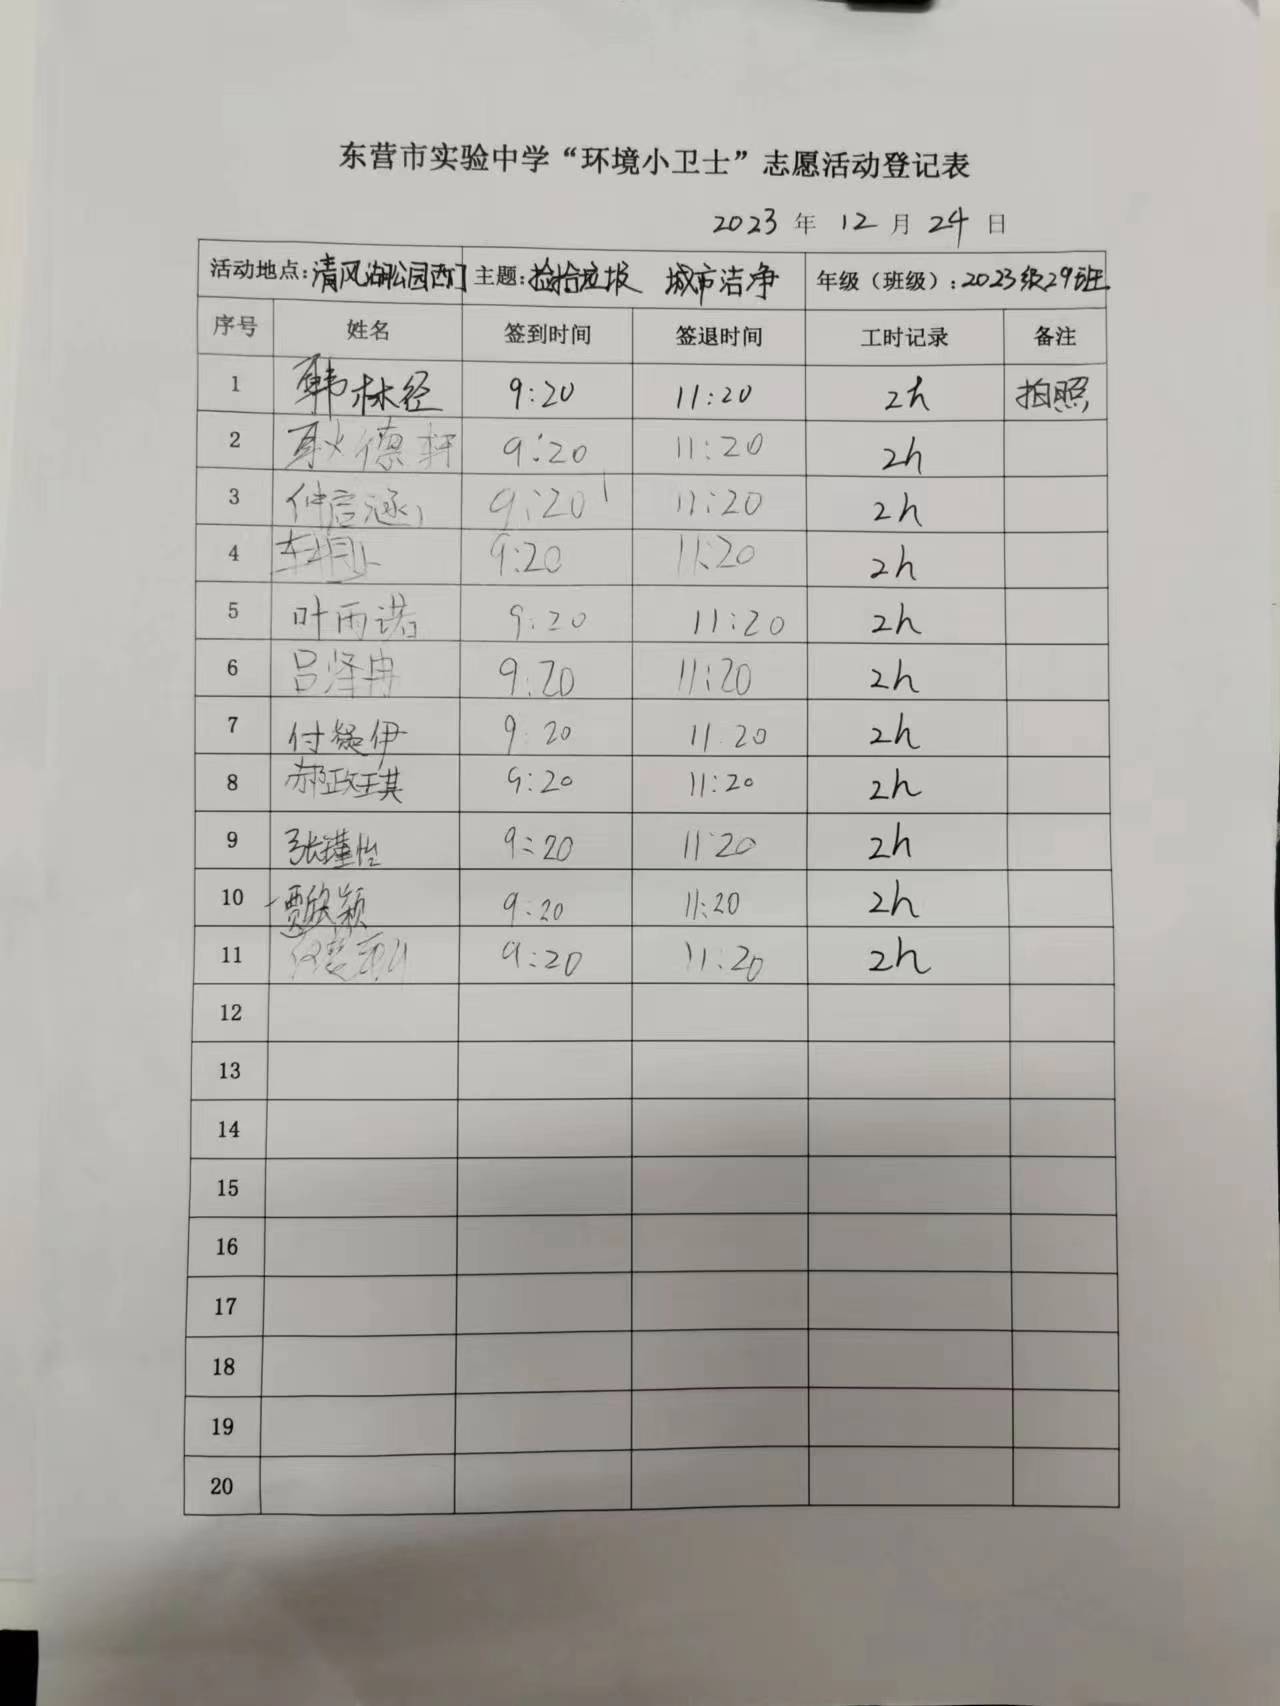 东营市实验中学“环境小卫士”志愿活动登记表
2023 年 12 月 24 日
活动地点:清风湖公园西门 主题:捡拾垃圾 城市洁净 年级（班级）:2023级29班
序号 姓名 签到时间 签退时间 工时记录 备注
1 韩林经 9:20 11:20 2h 拍照
2 耿德轩 9:20 11:20 2h
3 仲启涵 9:20 11:20 2h
4 9:20 11:20 2h
5 叶雨诺 9:20 11:20 2h
6 吕泽冉 9:20 11:20 2h
7 付凝伊 9:20 11:20 2h
8 郝政琪 9:20 11:20 2h
9 张瑾怡 9:20 11:20 2h
10 贾欣颖 9:20 11:20 2h
11 9:20 11:20 2h
12
13
14
15
16
17
18
19
20